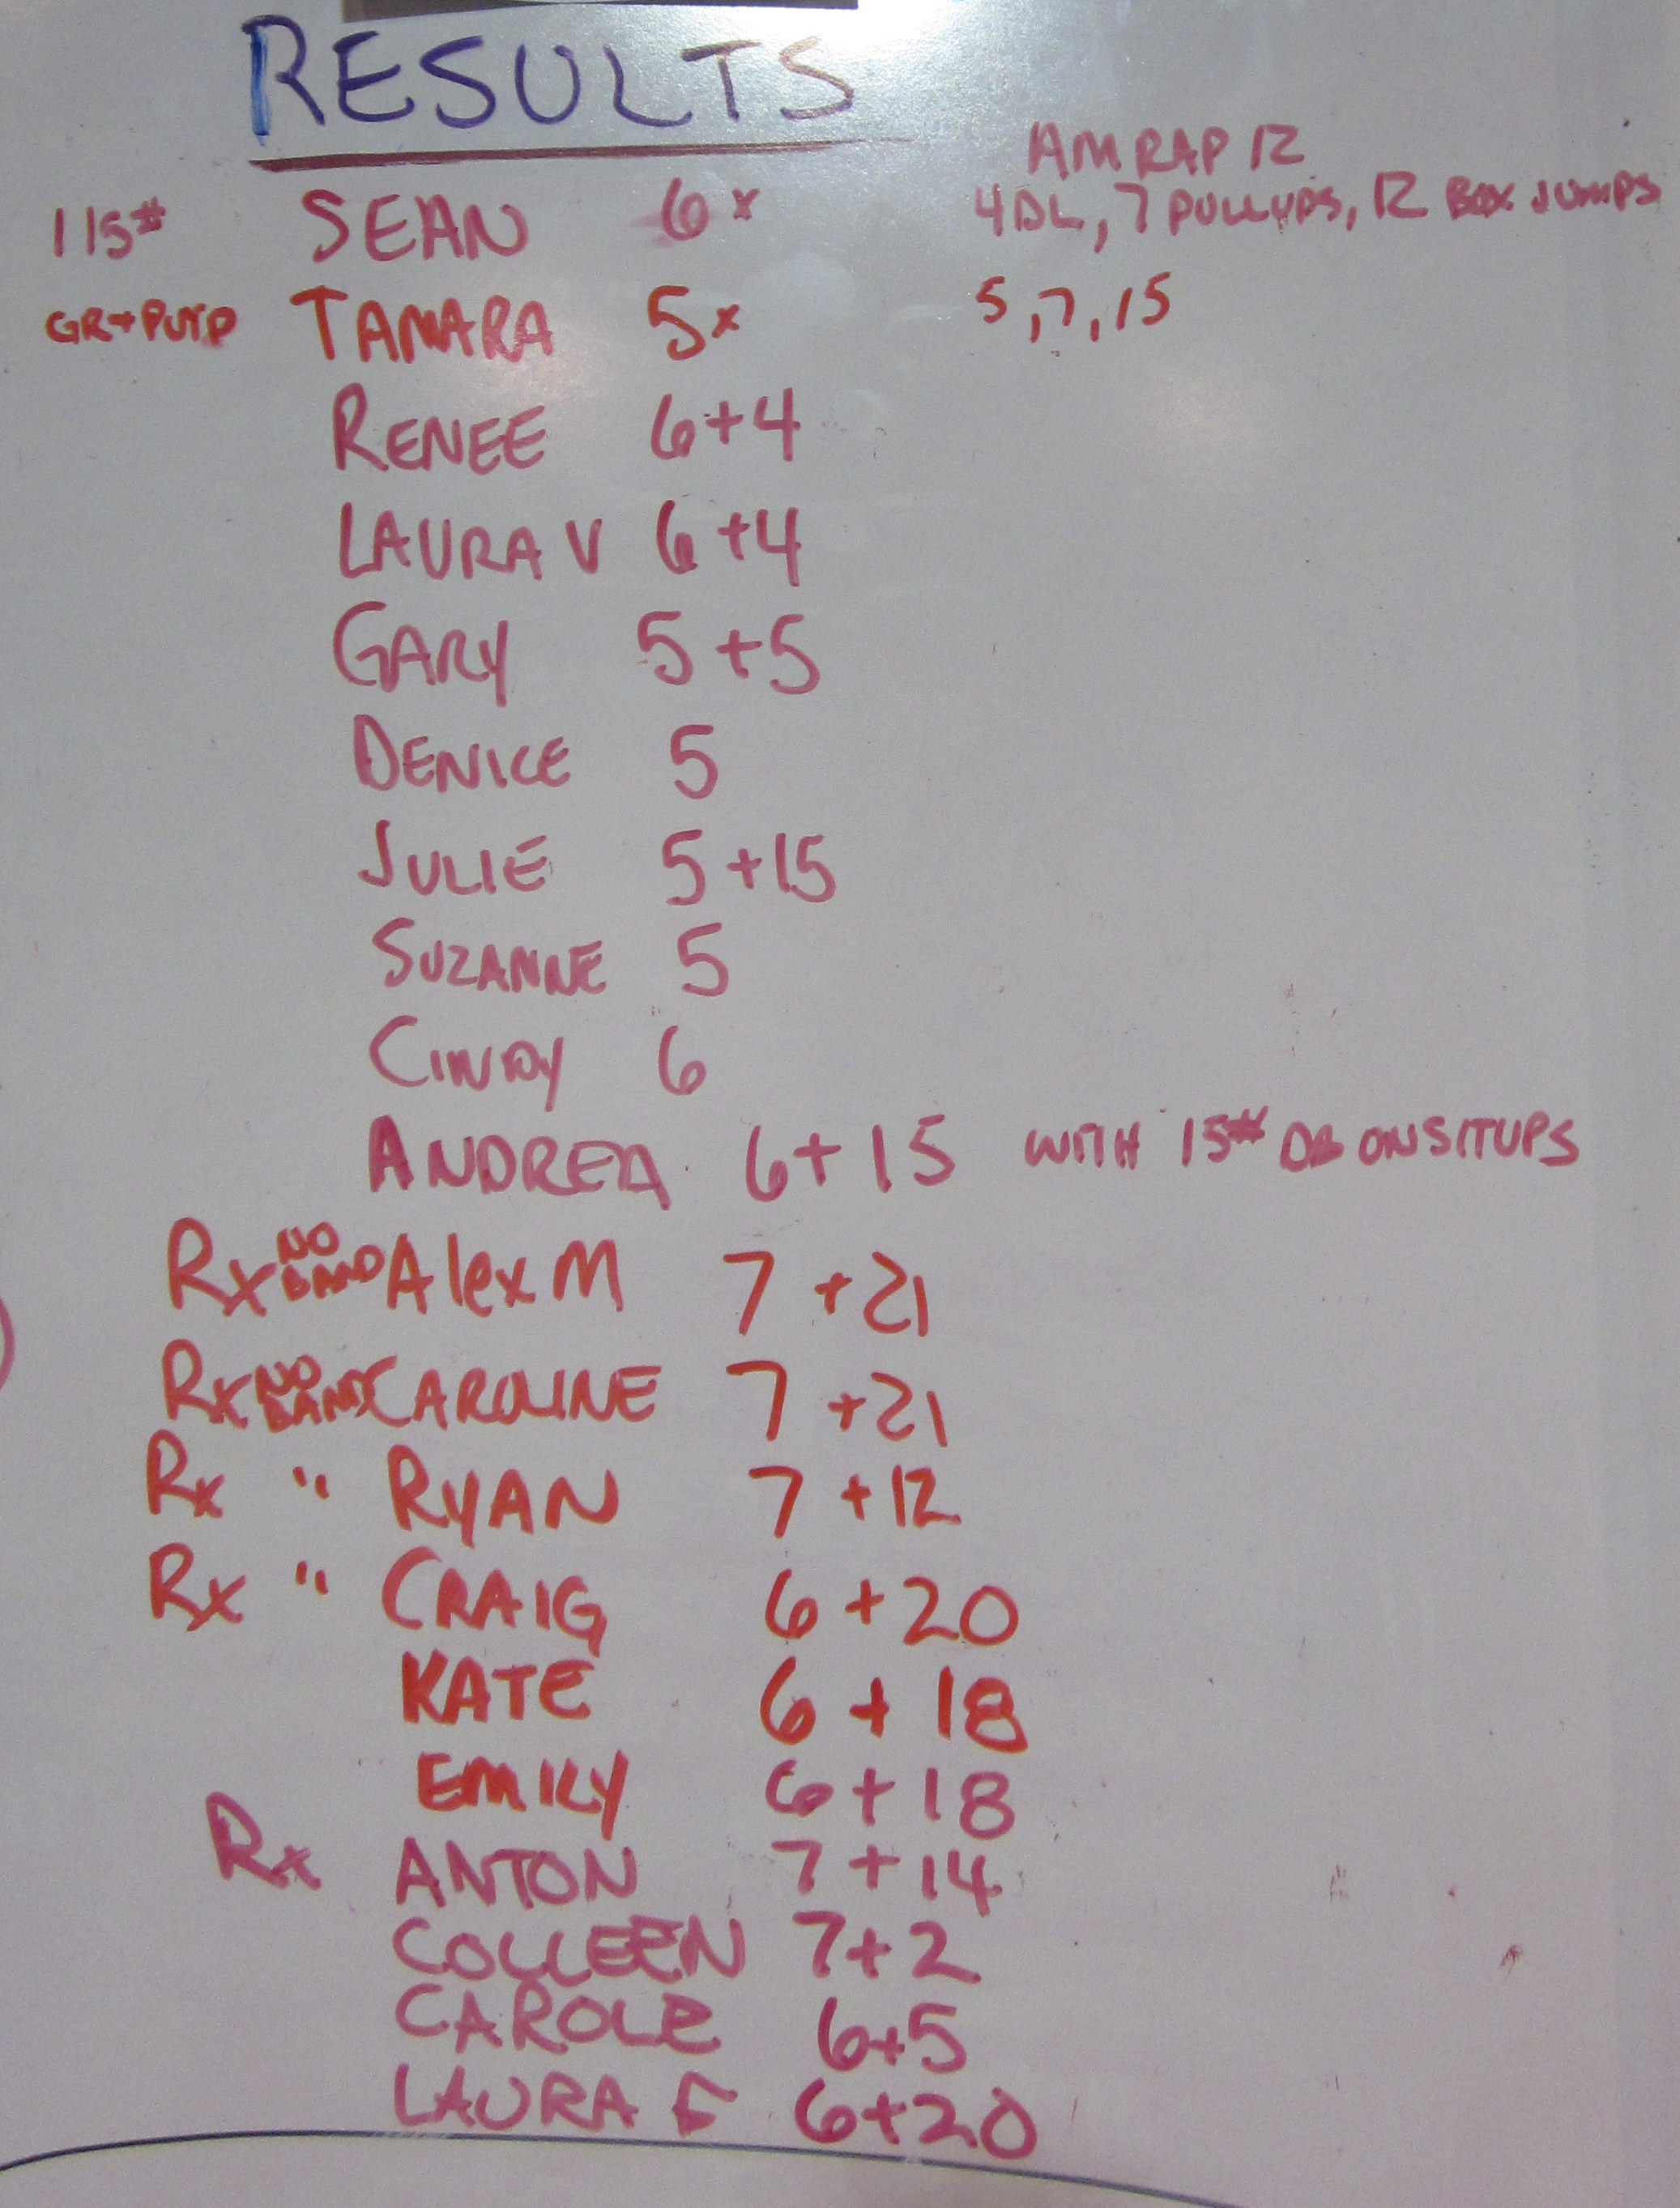 RESULTS
AMRAP 12
115# SEAN 6x 4DL, 7 PULLUPS, 12 BOX JUMPS
GR+PURP TAMARA 5x 5,7,15
RENEE 6+4
LAURA V 6+4
GARY 5+5
DENICE 5
JULIE 5+15
SUZANNE 5
CINDY 6
ANDREA 6+15 WITH 15# DB ON SITUPS
Rx NO BAND Alex M 7+21
Rx NO BAND CAROLINE 7+21
Rx " RYAN 7+12
Rx " CRAIG 6+20
KATE 6+18
EMILY 6+18
Rx ANTON 7+14
COLLEEN 7+2
CAROLE 6+5
LAURA F 6+20